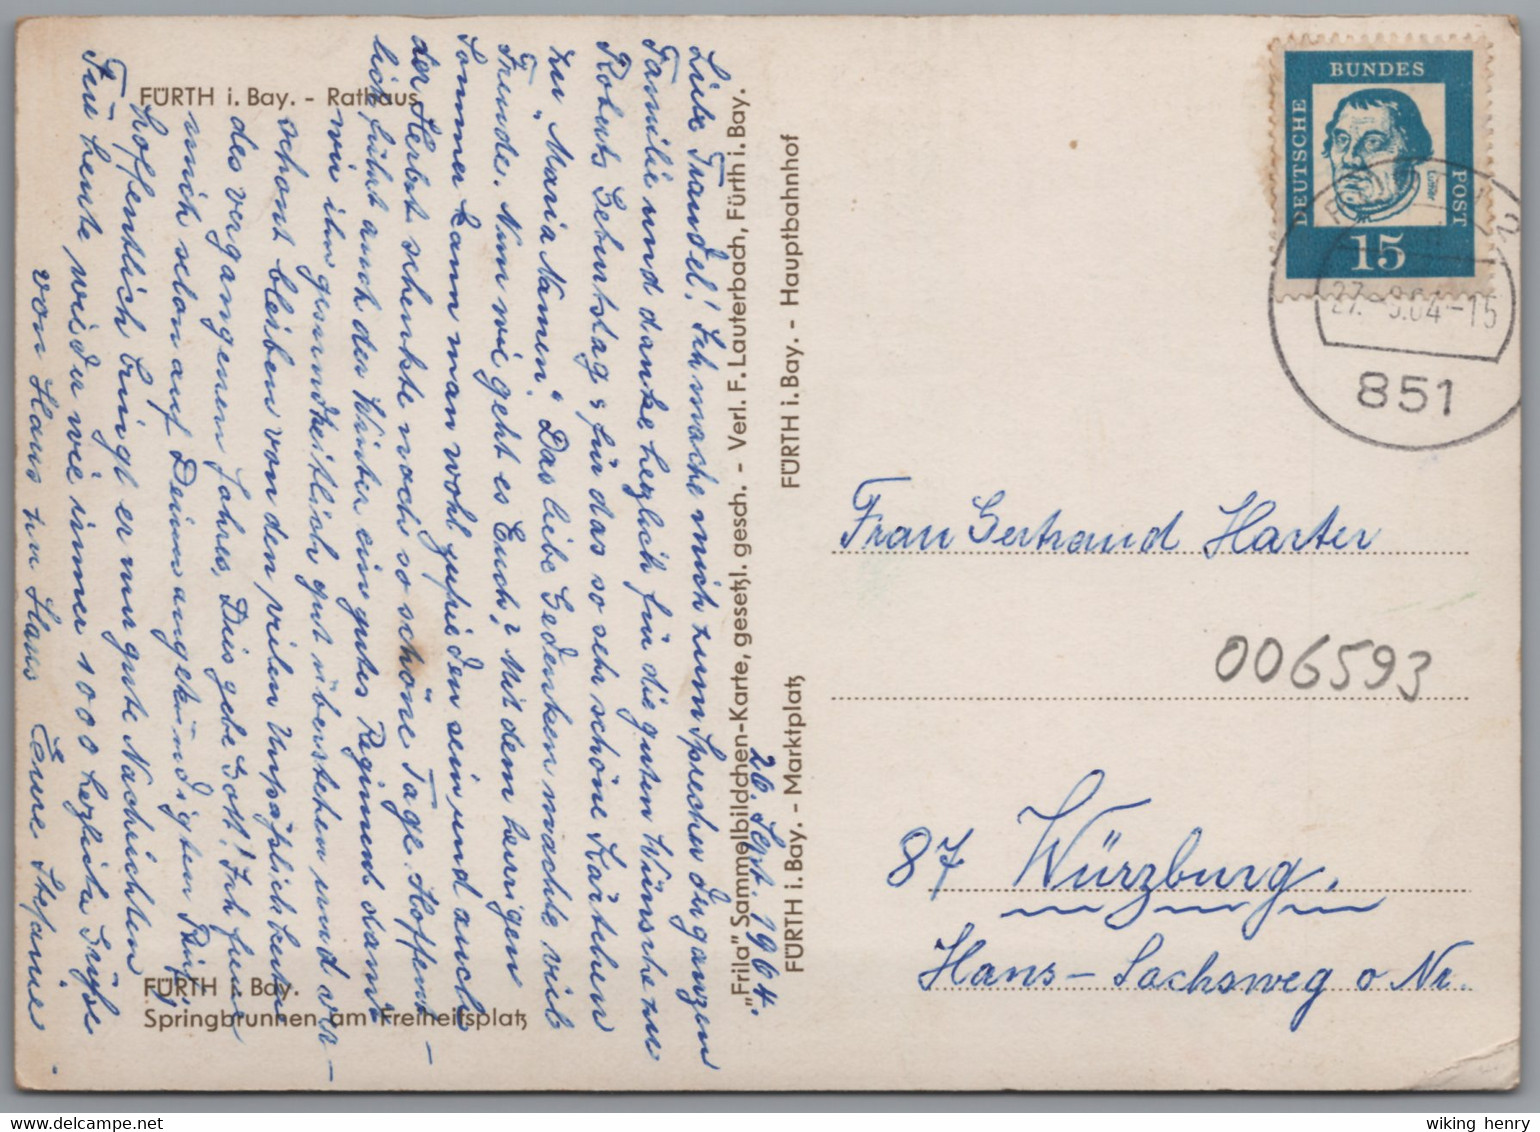 FÜRTH i. Bay. - Rathaus
FÜRTH i. Bay.
Springbrunnen am Freiheitsplatz
"Frila" Sammelbildchen-Karte, gesetzl. gesch. - Verl. F. Lauterbach, Fürth i. Bay.
FÜRTH i. Bay. - Marktplatz
FÜRTH i. Bay. - Hauptbahnhof
26. Sept. 1964.
Liebe Traudel! Ich mache mich zum Sprecher der ganzen
Familie und danke herzlich für die guten Wünsche zu
Roberts Geburtstag, für das so sehr schöne Kärtchen
zu "Maria Namen" Das liebe Gedenken machte viel
Freude. Nun wie geht es Euch? Mit dem heurigen
Sommer kann man wohl zufrieden sein und auch
der Herbst schenkte noch so schöne Tage. Hoffent-
lich führt auch der Winter ein gutes Regiment damit
wir ihn gesundheitlich gut überstehen und ver-
schont bleiben von den vielen Unpäßlichkeiten
des vergangenen Jahres. Dies gebe Gott! Ich freue
mich schon auf Deinen angekündigten Brief
hoffentlich bringt er nur gute Nachrichten
Für heute wieder wie immer 1000 herzliche Grüße
von Haus zu Haus Eure Stefanie
DEUTSCHE
BUNDES
POST
15
27.-9.64-15
851
Frau Gertraud Harter
006593
87 Würzburg.
Hans-Sachsweg o Nr.
wiking henry